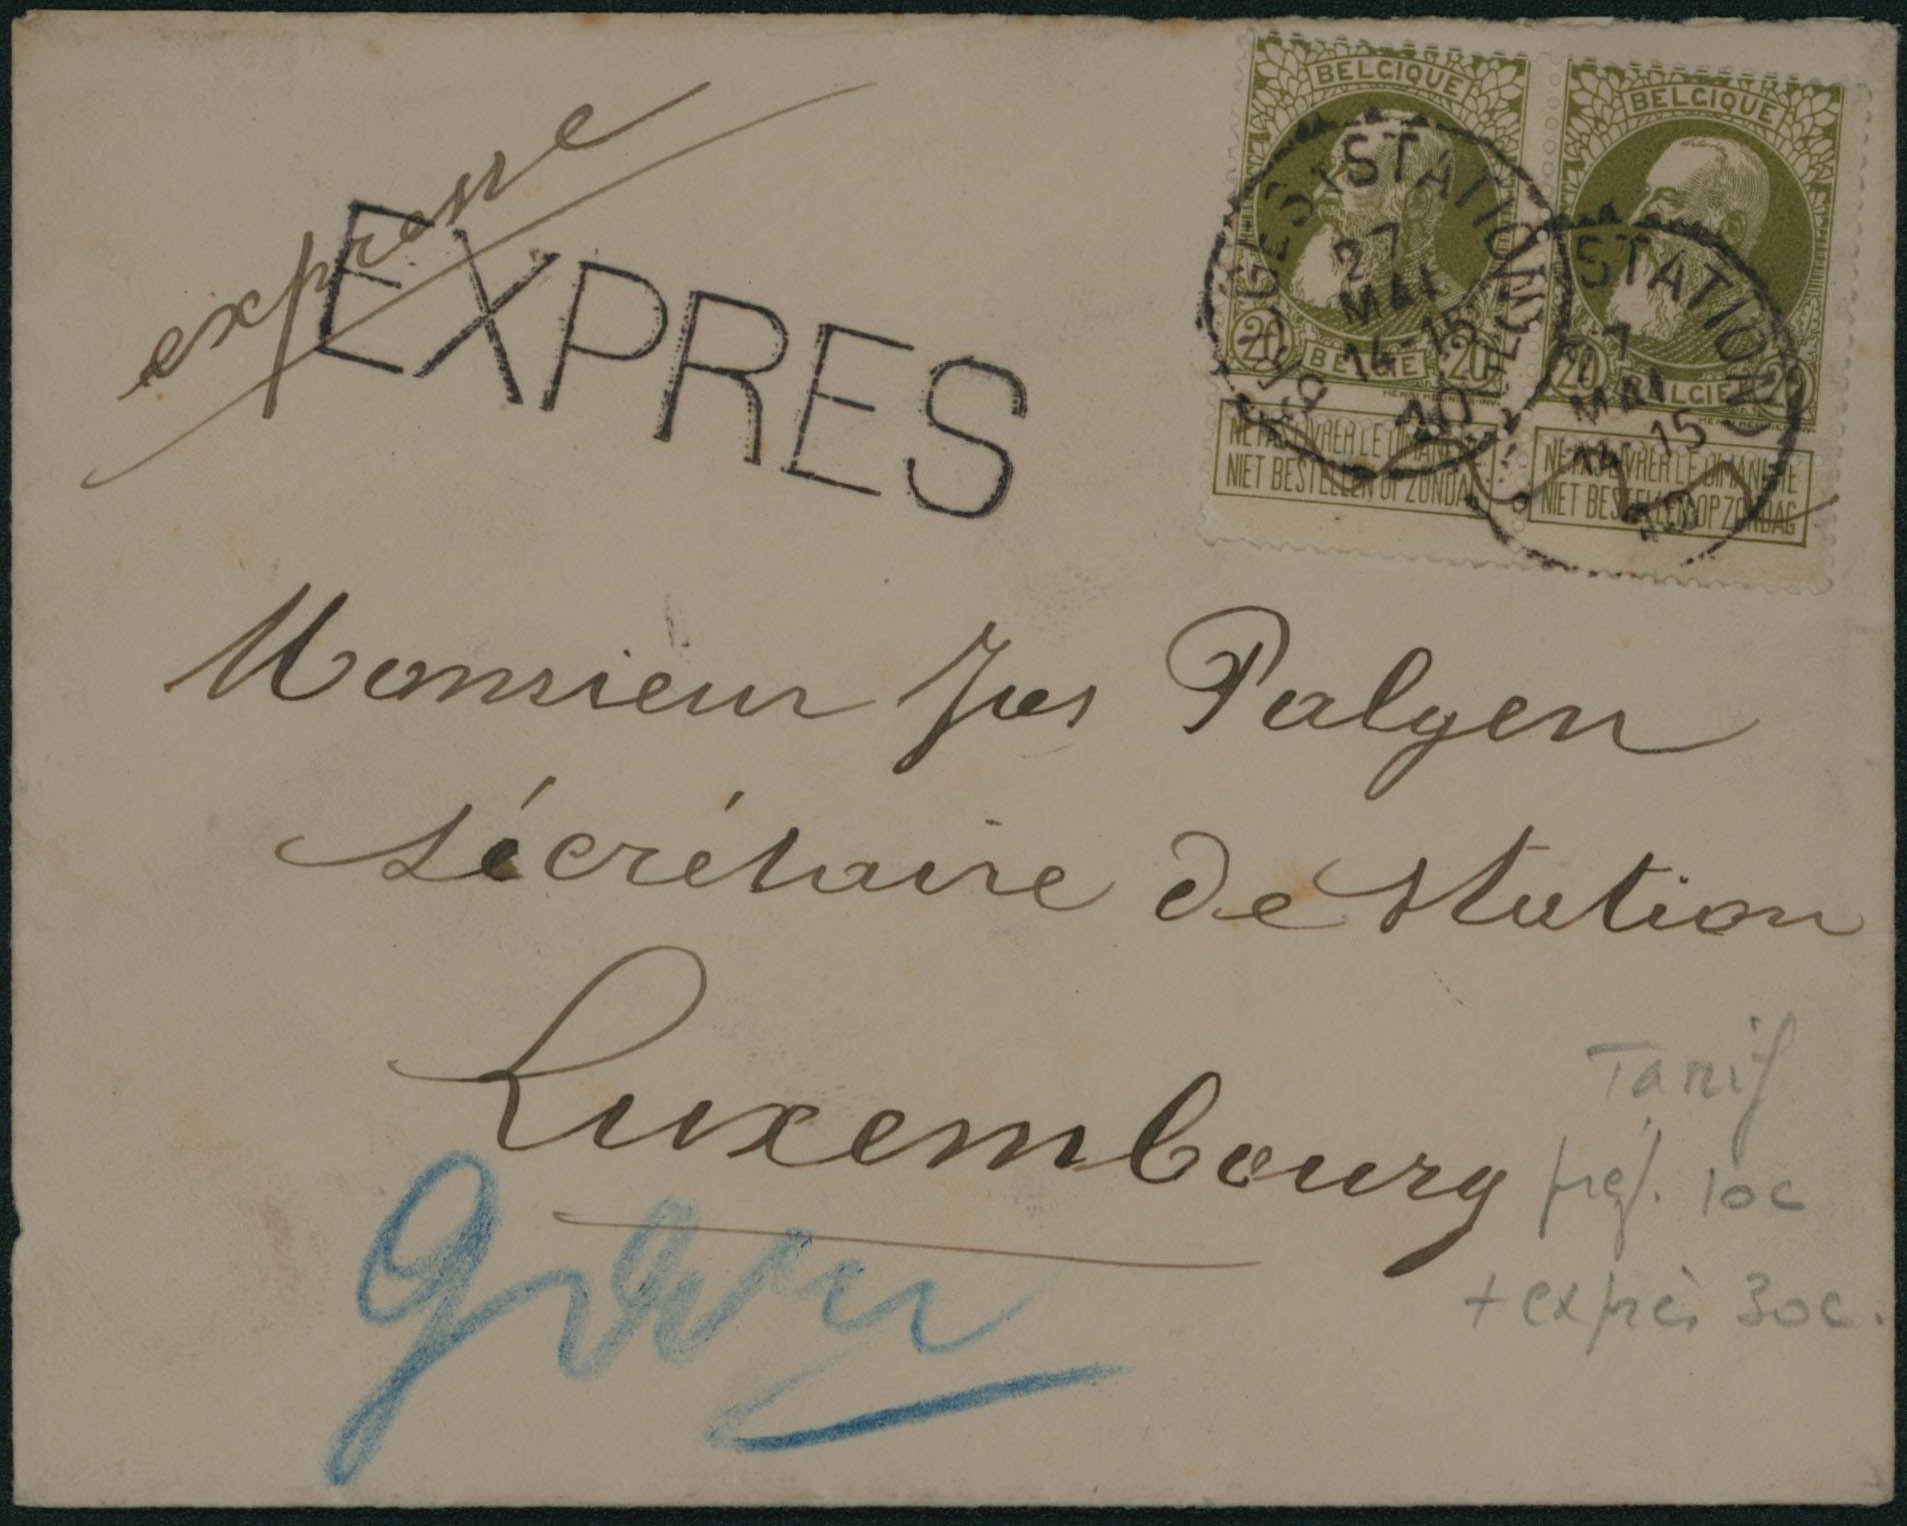 expresse
EXPRES
BELGIQUE
20 BELGIË 20
HENRI MEUNIER-INV.
NE PAS LIVRER LE DIMANCHE
NIET BESTELLEN OP ZONDAG
BELGIQUE
20 BELGIË 20
NE PAS LIVRER LE DIMANCHE
NIET BESTELLEN OP ZONDAG
STATION
27
MAI
14-15
10
STATION
27
MAI
14-15
10
Monsieur Jos Palgen
sécrétaire de station
Luxembourg
Tarif
préf. 10c
+ exprès 30c.